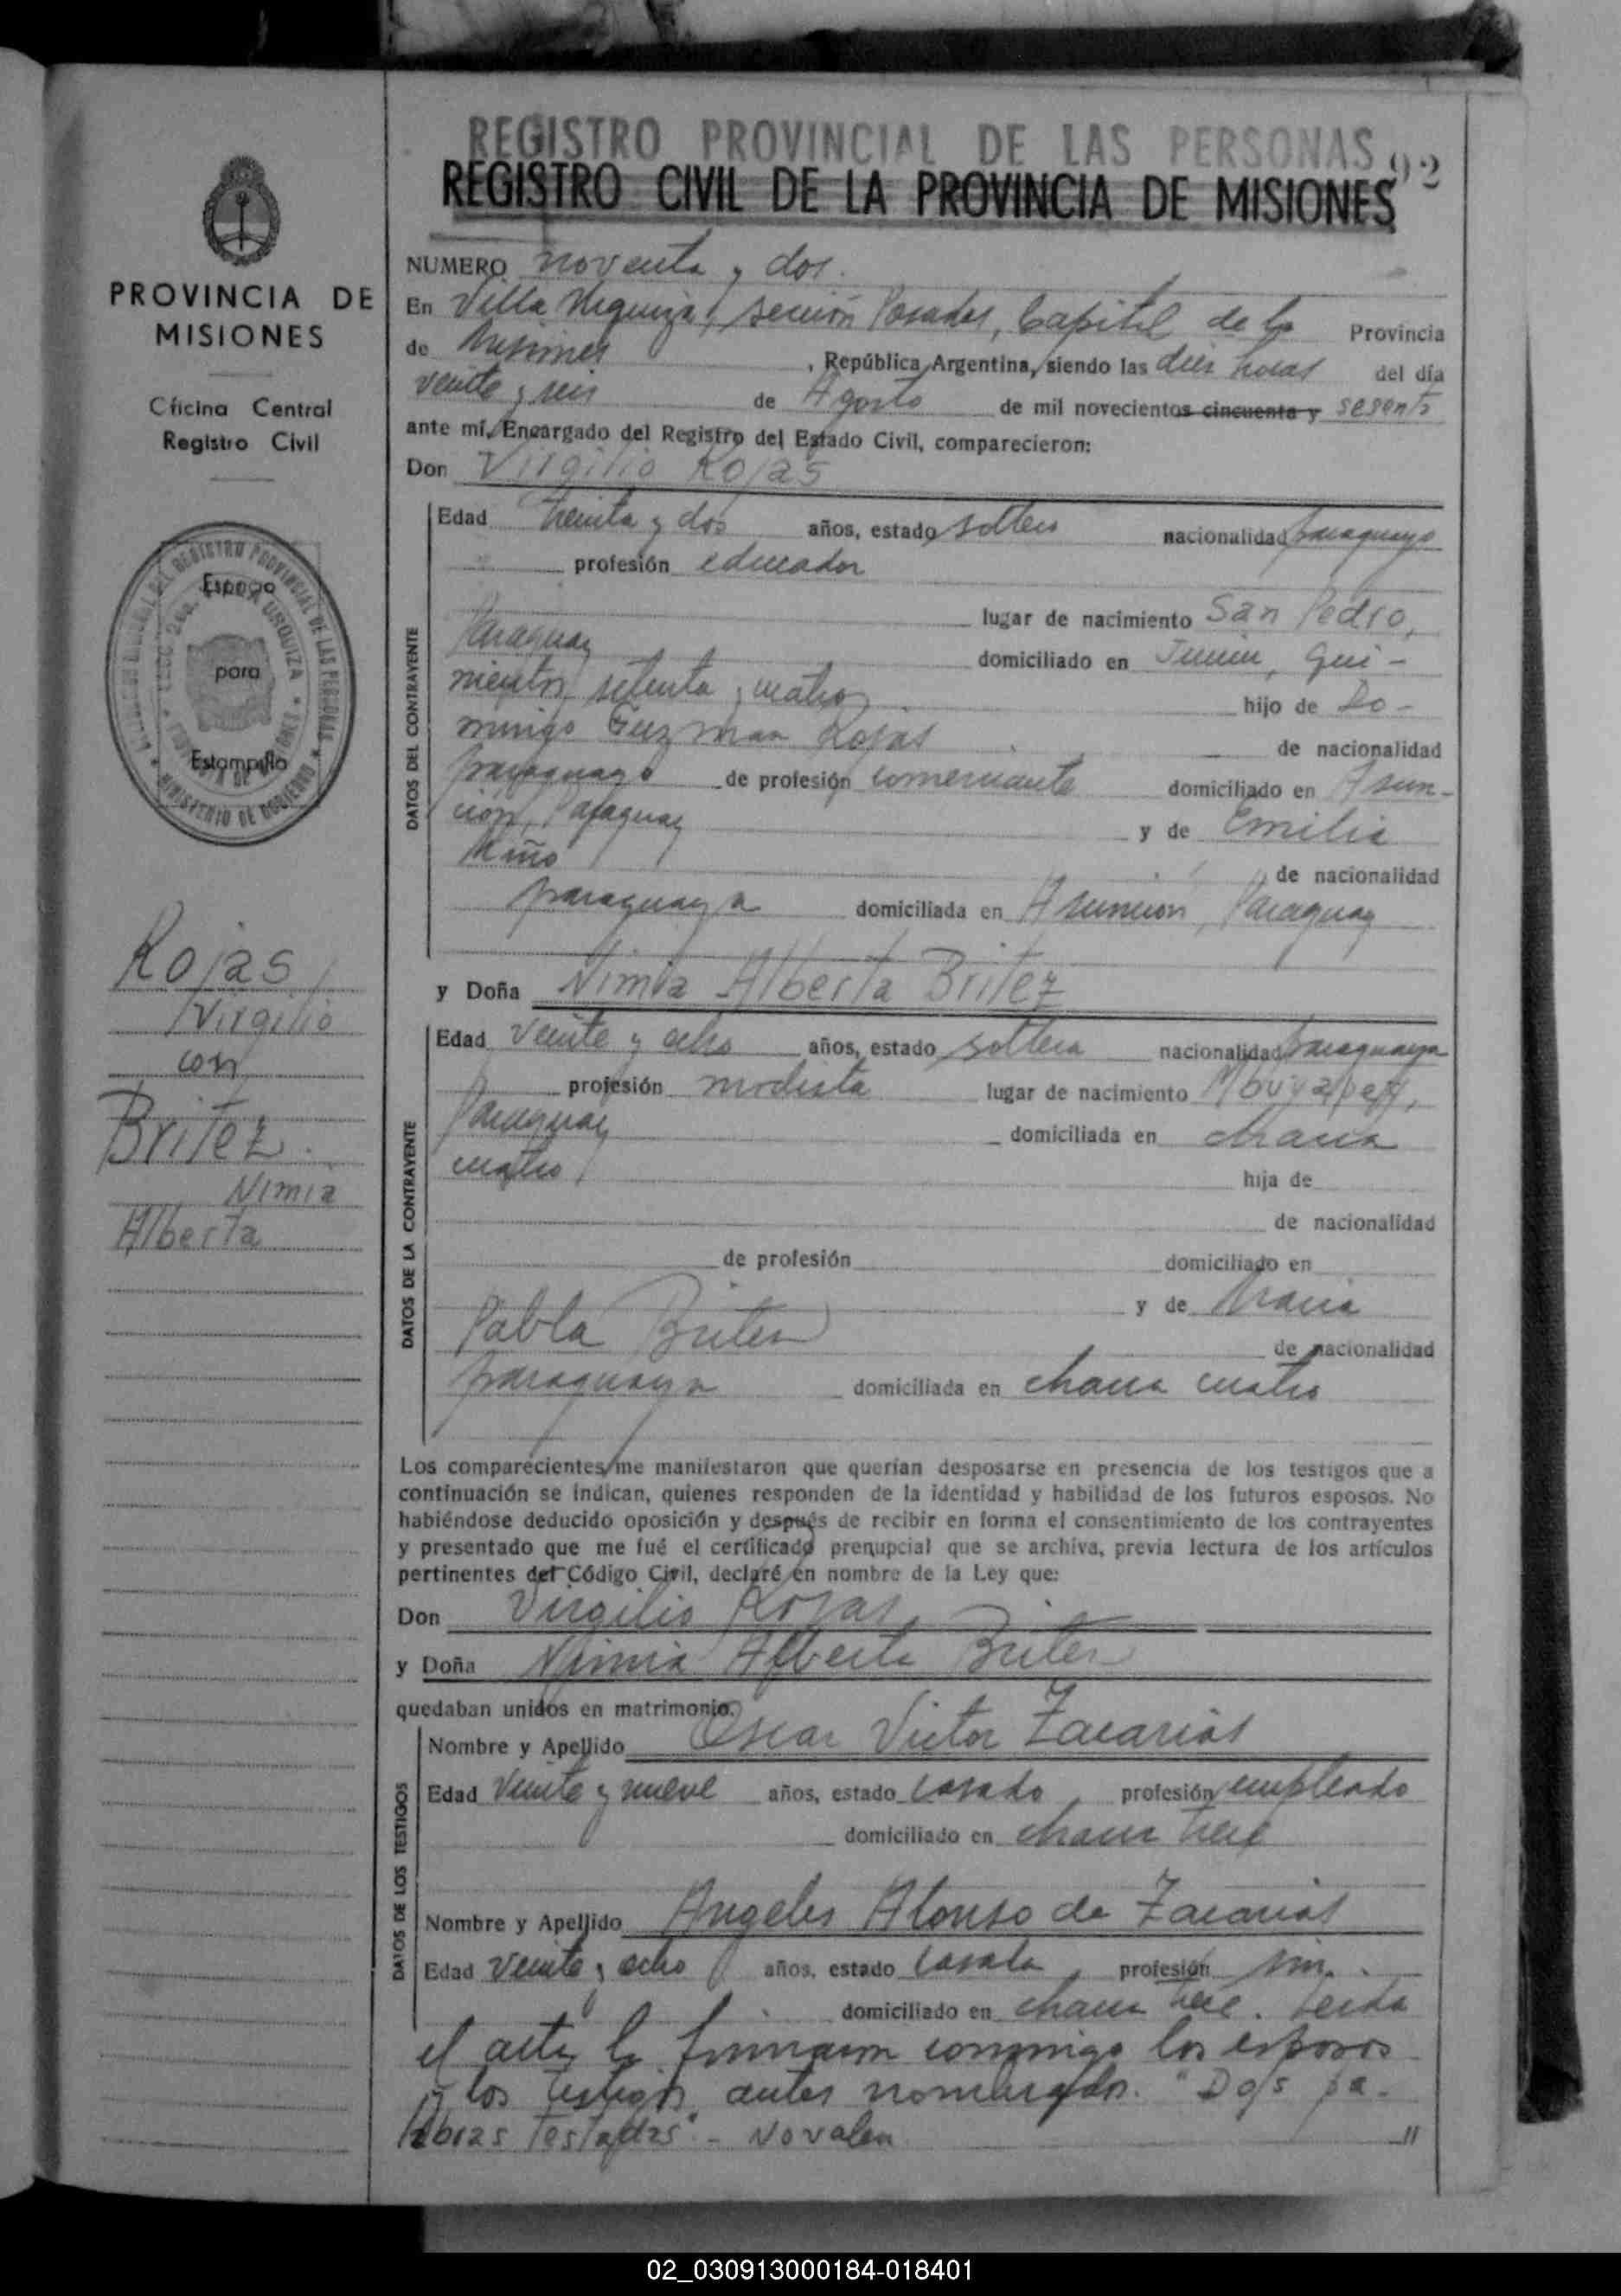 PROVINCIA DE
MISIONES
Oficina Central
Registro Civil
Espacio
para
Estampilla
Rojas
Virgilio
con
Britez
Nimia
Alberta
REGISTRO PROVINCIAL DE LAS PERSONAS
92
REGISTRO CIVIL DE LA PROVINCIA DE MISIONES
NUMERO noventa y dos.
En Villa Urquiza, sección Posadas, Capital de la Provincia
de Misiones, República Argentina, siendo las diez horas del día
veinte y seis de Agosto de mil novecientos cincuenta y sesenta
ante mí, Encargado del Registro del Estado Civil, comparecieron:
Don Virgilio Rojas
DATOS DEL CONTRAYENTE
Edad treinta y dos años, estado soltero nacionalidad paraguayo
profesión educador
lugar de nacimiento San Pedro,
Paraguay domiciliado en Junin, qui-
nientos setenta y cuatro hijo de Do-
mingo Guzman Rojas de nacionalidad
paraguayo de profesión comerciante domiciliado en Asun-
ción, Paraguay y de Emilia
Miño de nacionalidad
paraguaya domiciliada en Asunción, Paraguay
y Doña Nimia Alberta Britez
DATOS DE LA CONTRAYENTE
Edad veinte y ocho años, estado soltera nacionalidad paraguaya
profesión modista lugar de nacimiento Mbuyapey,
Paraguay domiciliada en chacra
cuatro hija de
de nacionalidad
de profesión domiciliado en
y de Maria
Pabla Britez de nacionalidad
paraguaya domiciliada en chacra cuatro
Los comparecientes me manifestaron que querían desposarse en presencia de los testigos que a
continuación se indican, quienes responden de la identidad y habilidad de los futuros esposos. No
habiéndose deducido oposición y después de recibir en forma el consentimiento de los contrayentes
y presentado que me fué el certificado prenupcial que se archiva, previa lectura de los artículos
pertinentes del Código Civil, declaré en nombre de la Ley que:
Don Virgilio Rojas
y Doña Nimia Alberta Britez
quedaban unidos en matrimonio.
DATOS DE LOS TESTIGOS
Nombre y Apellido Oscar Victor Zacarias
Edad veinte y nueve años, estado casado profesión empleado
domiciliado en chacra trece
Nombre y Apellido Angeles Alonso de Zacarias
Edad veinte y ocho años, estado casada profesión sin.
domiciliado en chacra trece. Leida
el acta, la firmaron conmigo los esposos
y los testigos antes nombrados. "Dos pa-
labras testadas" - No valen //
02_030913000184-018401